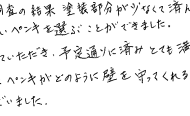 査の結果 塗装部分が少なくて済ん
いペンキを選ぶことができました。
ていただき、予定通りに済み とても 満
ペンキがどのように壁を守ってくれる
ざいました。